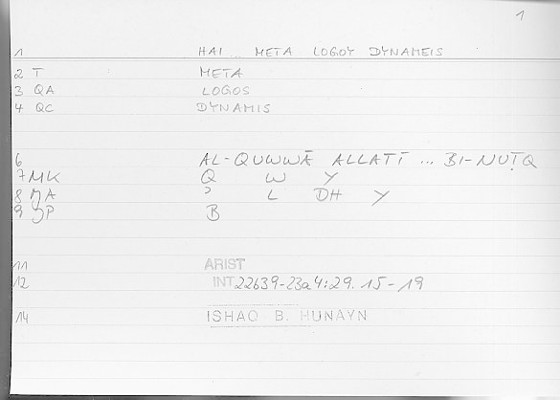 1
1 HAI META LOGOY DYNAMEIS
2 T META
3 QA LOGOS
4 QC DYNAMIS
6 AL-QUWWĀ ALLATĪ ... BI-NUṬQ
7 MK Q W Y
8 ʾ L DH Y
9 B
11 ARIST
12 INT 22b39-23a4:29.15-19
14 ISHAQ B. HUNAYN